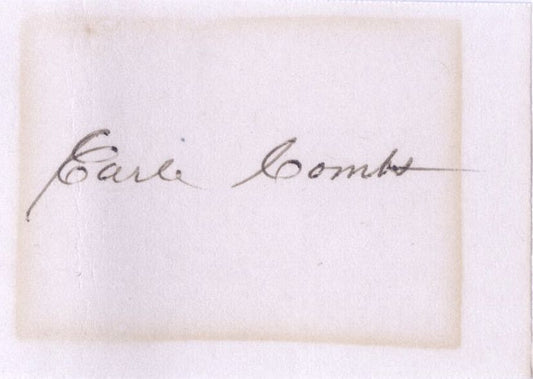 Earle Combs